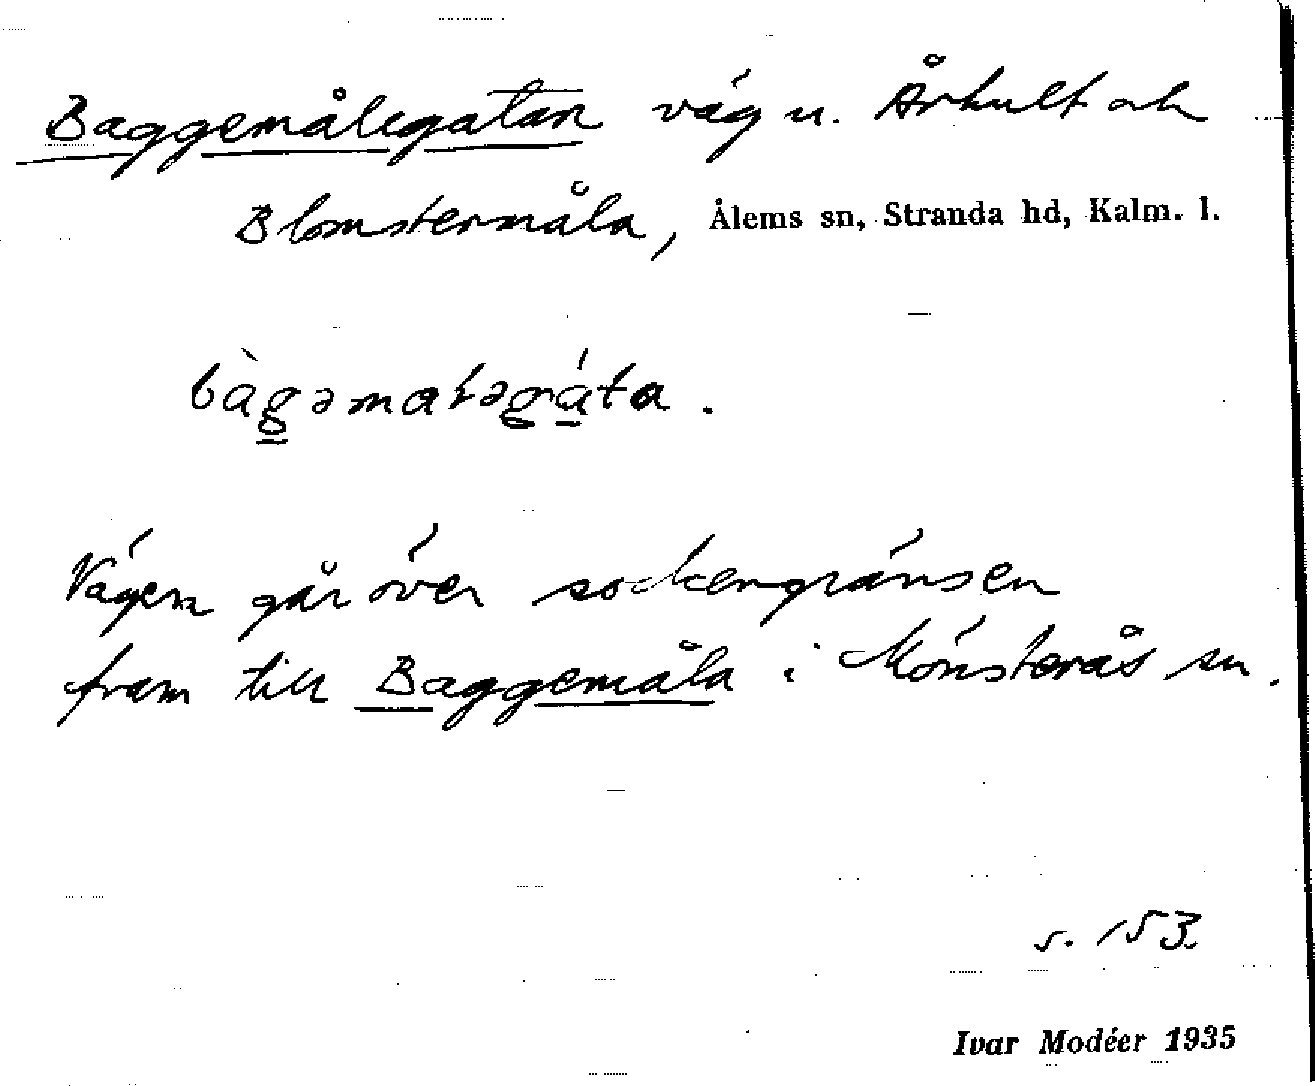 Baggemålegatan väg u. Århult och
Blomstermåla, Ålems sn, Stranda hd, Kalm. l.
bàgəmaləgáta.
Vägen går över sockengränsen
fram till Baggemåla i Mönsterås sn.
s. 153.
Ivar Modéer 1935